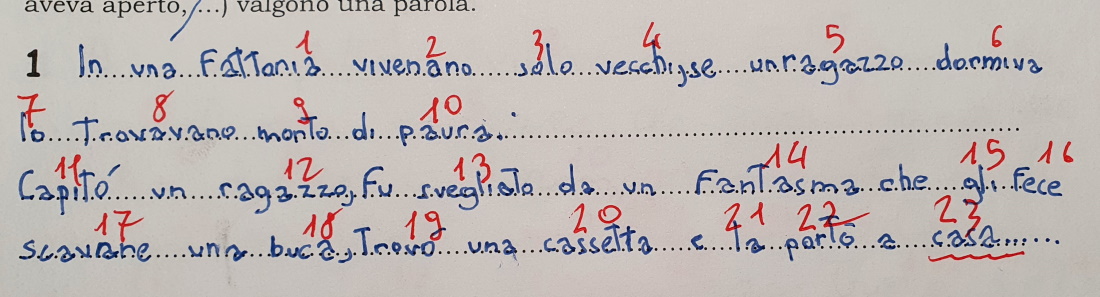 aveva aperto, ...) valgono una parola.
1 2 3 4 5 6
1 In una Fattoria vivevano solo vecchi, se un ragazzo dormiva
7 8 9 10
lo Trovavano morto di paura.
11 12 13 14 15 16
Capitò un ragazzo, Fu svegliato da un Fantasma che gli Fece
17 18 19 20 21 22 23
scavare una buca, Trovò una cassetta e la portò a casa